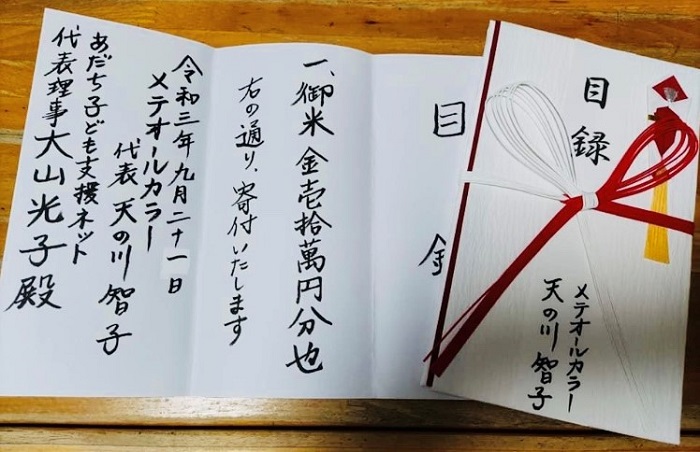 目録
メテオールカラー
天の川 智子
目
一、御米 金壱拾萬円分也
右の通り、寄付いたします
令和三年九月二十一日
メテオールカラー
代表 天の川 智子
あだち子ども支援ネット
代表理事 大山光子殿